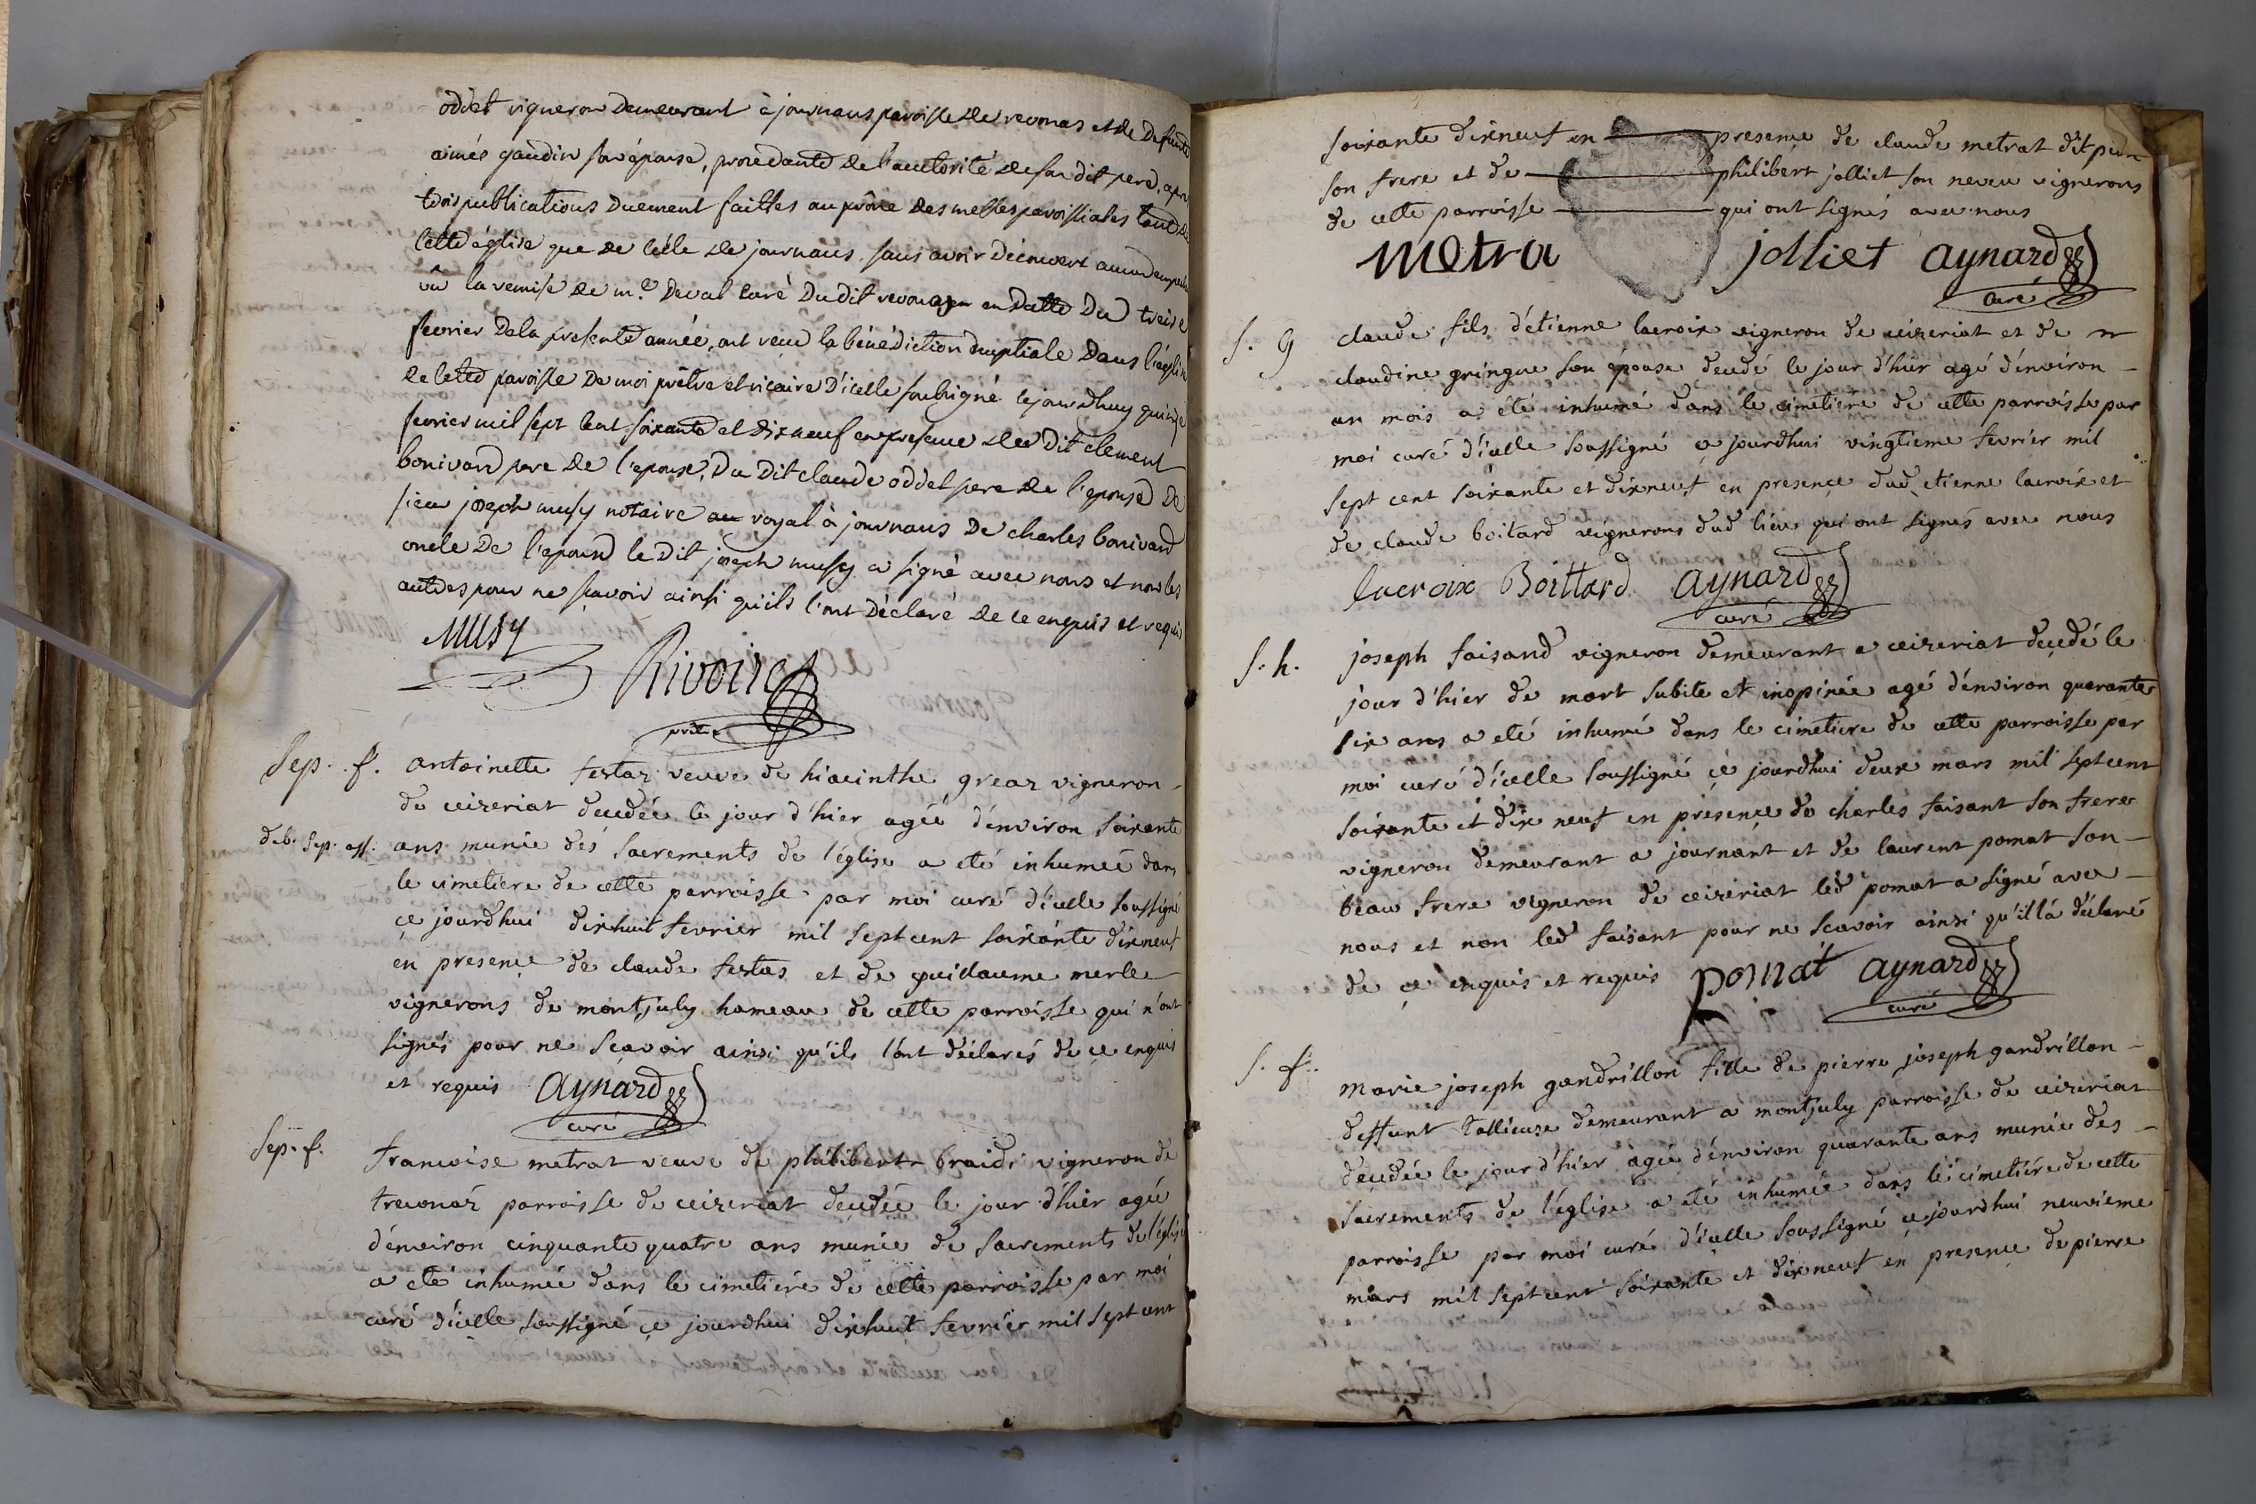 oddet vigneron demeurant à journans paroisse de revonas et de defunte
aimés gaudin son épouse, procedante de l'autorité de son dit pere, apres
trois publications duement faittes au prône des messes paroissiales tant de
cette église que de celle de journans sans avoir découvert aucun
vû la remise de mr. Deval curé du dit revonas en datte du treise
fevrier de la presente année, ont reçu la bénédiction nuptiale dans l'église
de cette paroisse de moi prêtre et vicaire d'icelle soussigné cejourdhuy quinze
fevrier mil sept cent soixante et dix neuf en presence du dit clement
bonivard pere de l'epouse, du dit claude oddet pere de l'epouse de
sieur joseph musy notaire royal à journans de charles bonivard
oncle de l'epouse le dit joseph musy a signé avec nous et non les
autres pour ne scavoir ainsi qu'ils l'ont déclaré de ce enquis et requis
Musy
Rivoire
prêtre
Sep. f. antoinette festaz veuve de hiacinthe greaz vigneron
de ceizeriat decedée le jour d'hier agée d'environ soixante
deb. sep. aff. ans munie des sacrements de l'église a eté inhumeé dans
le cimetiere de cette parroisse par moi curé d'icelle soussigné
ce jourdhui dixhuit fevrier mil sept cent soixante dixneuf
en presence de claude festas et de guillaume merle
vignerons de montjuly hameau de cette parroisse qui n'ont
signés pour ne sçavoir ainsi qu'ils l'ont déclarés de ce enquis
et requis aynard
curé
Sep. f. francoise metrat veuve de philibert braidi vigneron de
treconaz parroisse de ceizeriat decedée le jour d'hier agée
d'environ cinquante quatre ans munie de sacrements de l'église
a eté inhumeé dans le cimetiere de cette parroisse par moi
curé d'icelle soussigné ce jourdhui dixhuit fevrier mil sept cent
soixante dixneuf en presence de claude metrat dit
son frere et de philibert jolliet son neveu vignerons
de cette parroisse qui ont signés avec nous
metra jolliet aynard
curé
S. G claude fils d'étienne lacroix vigneron de ceizeriat et de
claudine gringue son épouse decedé le jour d'hier agé d'environ
un mois a été inhumé dans le cimetiere de cette parroisse par
moi curé d'icelle soussigné ce jourdhui vingtieme fevrier mil
sept cent soixante et dixneuf en presence dud etienne lacroix et
de claude boitard vignerons dud lieu qui ont signés avec nous
lacroix Boittard aynard
curé
S. h. joseph faisand vigneron demeurant a ceizeriat decedé le
jour d'hier de mort subite et inopinée agé d'environ quarante
six ans a eté inhumé dans le cimetiere de cette parroisse par
moi curé d'icelle soussigné ce jourdhui deux mars mil sept cent
soixante et dix neuf en presence de charles faisant son frere
vigneron demeurant a journant et de laurent pomat son
beau frere vigneron de ceizeriat led pomat a signé avec
nous et non led faisant pour ne scavoir ainsi qu'il l'a déclaré
de ce enquis et requis pomat aynard
curé
S. f. marie joseph gandrillon fille de pierre joseph gandrillon
deffunt tallieuse demeurant a montjuly parroisse de ceizeriat
decedée le jour d'hier agée d'environ quarante ans munie des
sacrements de l'église a eté inhumée dans le cimetiére de cette
parroisse par moi curé d'icelle soussigné ce jourdhui neuvieme
mars mil sept cent soixante et dixneuf en presence de pierre